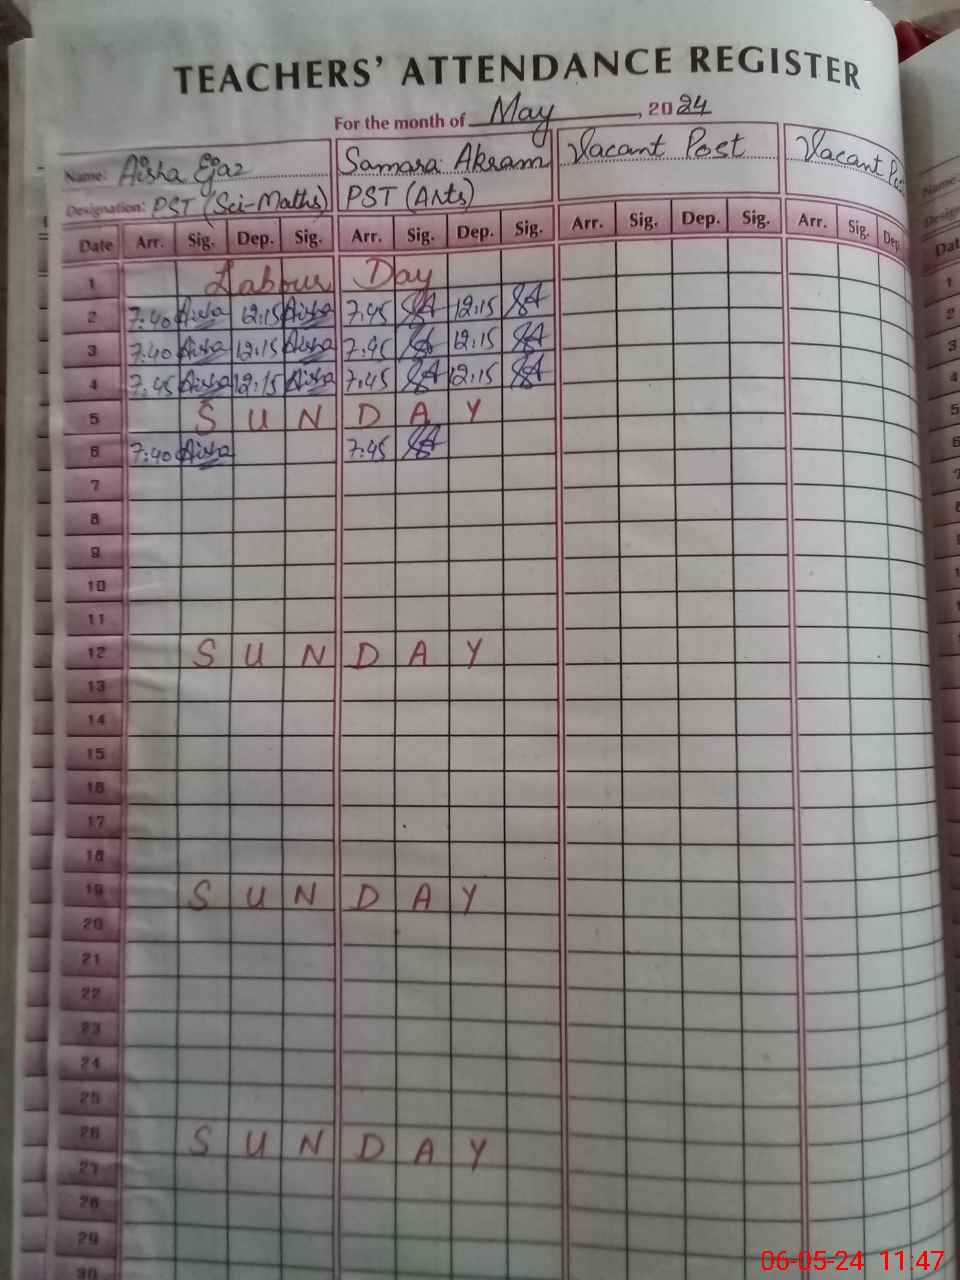 TEACHERS' ATTENDANCE REGISTER
For the month of May, 2024
Name: Aisha Ejaz Samara Akram Vacant Post Vacant Pos
Designation: PST (Sci-Maths) PST (Arts)
Date Arr. Sig. Dep. Sig. Arr. Sig. Dep. Sig. Arr. Sig. Dep. Sig. Arr. Sig. Dep.
1 Labour Day
2 7:40 Aisha 12:15 Aisha 7:45 SA 12:15 SA
3 7:40 Aisha 12:15 Aisha 7:45 SA 12:15 SA
4 7:45 Aisha 12:15 Aisha 7:45 SA 12:15 SA
5 SUNDAY
6 7:40 Aisha 7:45 SA
7
8
9
10
11
12 SUNDAY
13
14
15
16
17
18
19 SUNDAY
20
21
22
23
24
25
26 SUNDAY
27
28
29
30
06-05-24 11:47